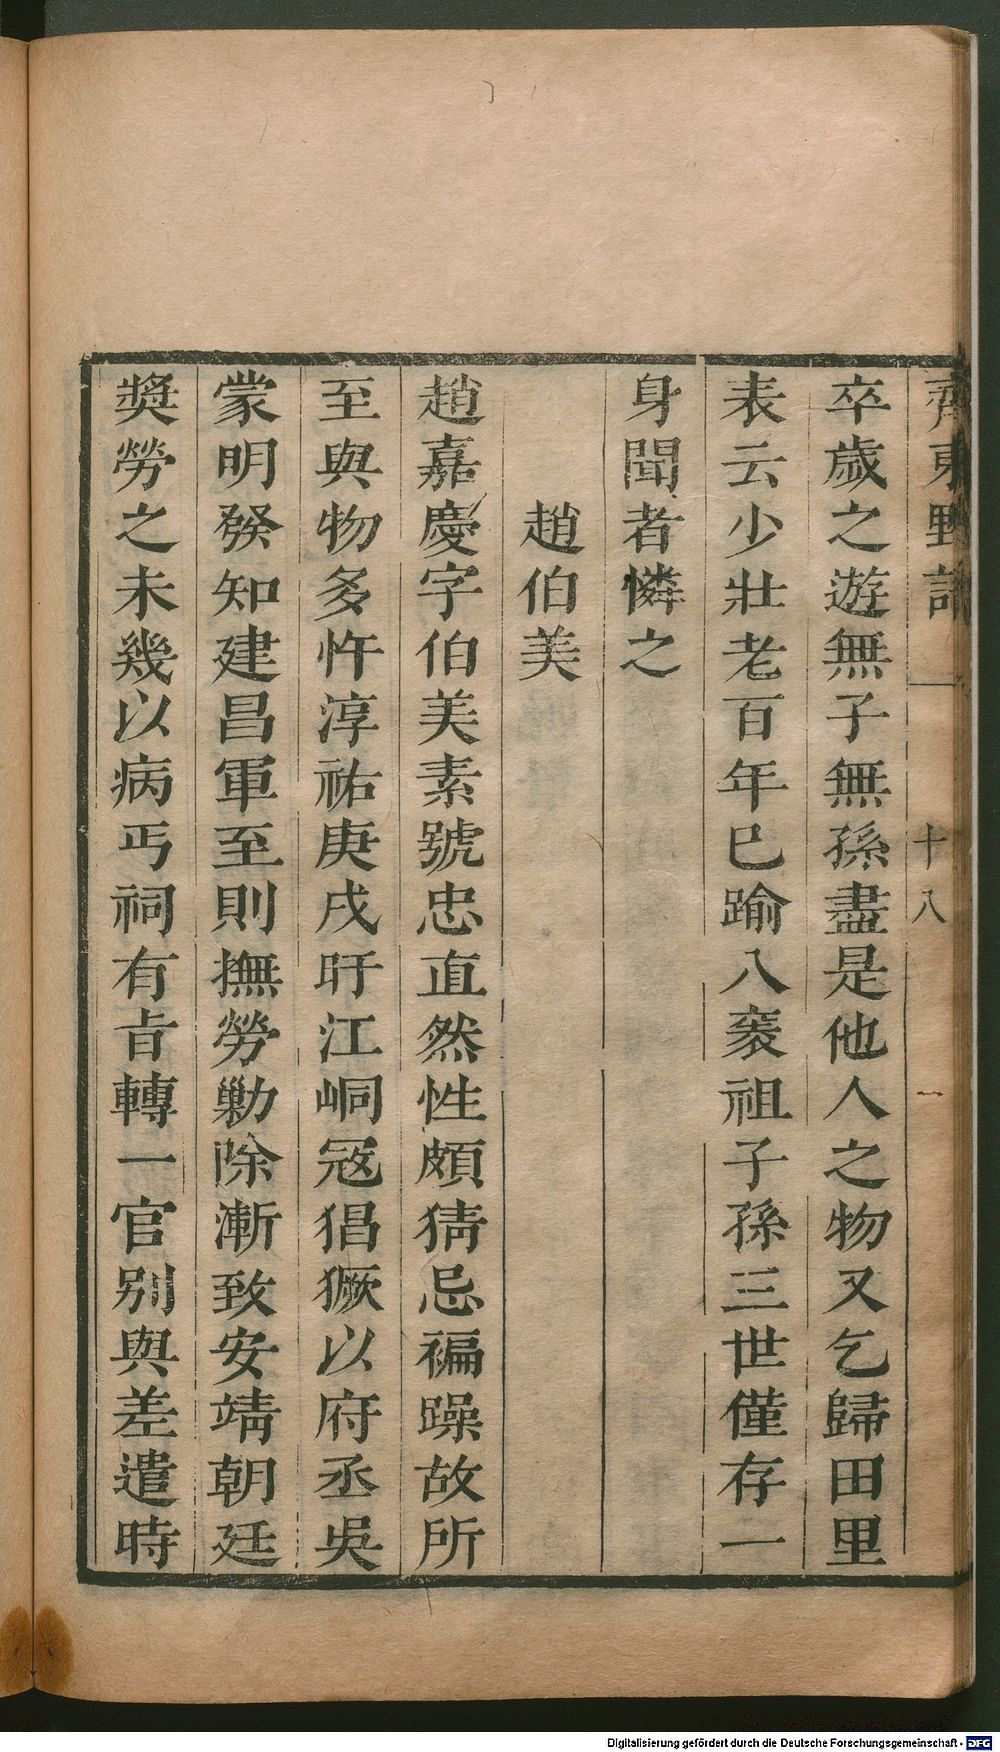 齊東野語
十八
一
卒歲之遊無子無孫盡是他人之物又乞歸田里
表云少壯老百年已踰八袠祖子孫三世僅存一
身聞者憐之
趙伯美
趙嘉慶字伯美素號忠直然性頗猜忌褊躁故所
至與物多忤淳祐庚戌旴江峒冦猖獗以府丞吳
蒙明發知建昌軍至則撫勞勦除漸致安靖朝廷
奬勞之未幾以病丐祠有㫖轉一官别與差遣時
Digitalisierung gefördert durch die Deutsche Forschungsgemeinschaft - DFG